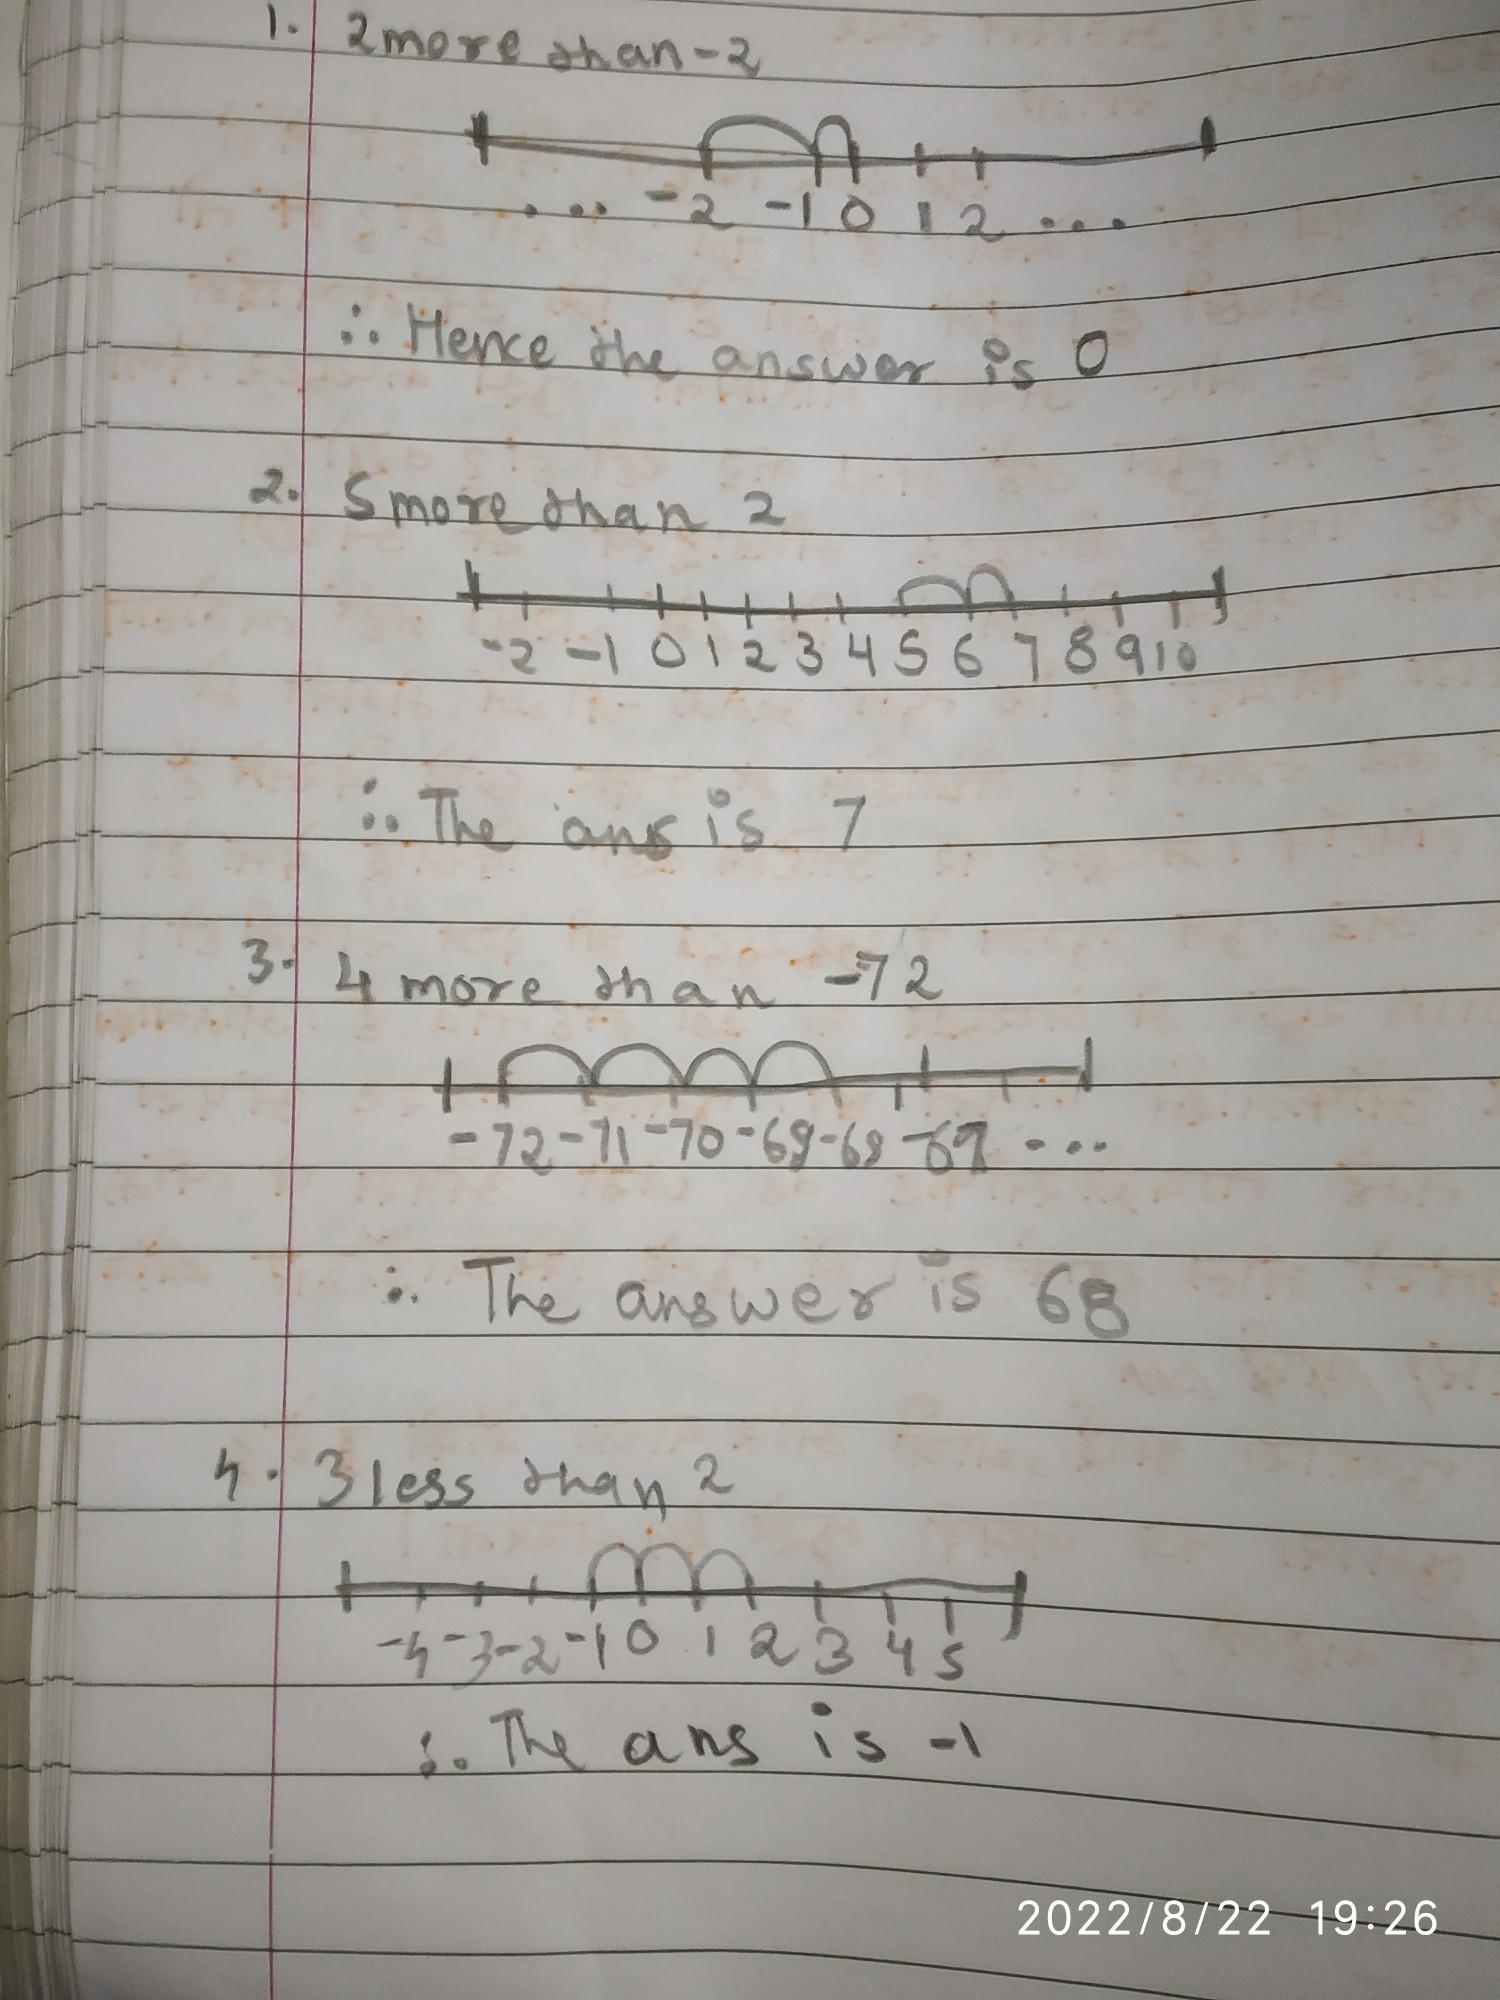 1. 2 more than -2
... -2 -1 0 1 2 ...
∴ Hence the answer is 0
2. 5 more than 2
-2 -1 0 1 2 3 4 5 6 7 8 9 10
∴ The ans is 7
3. 4 more than -72
-72 -71 -70 -69 -68 -67 ...
∴ The answer is 68
4. 3 less than 2
-4 -3 -2 -1 0 1 2 3 4 5
∴ The ans is -1
2022/8/22 19:26